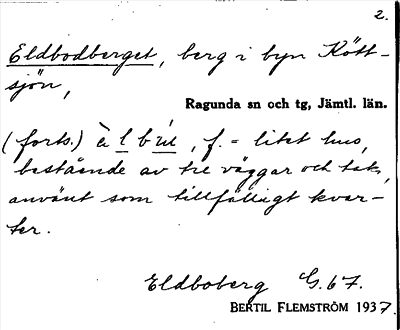 2.
Eldbodberget, berg i byn Kött-
sjön,
Ragunda sn och tg, Jämtl. län.
(forts.) , f. = litet hus,
bestående av tre väggar och tak,
använt som tillfälligt kvar-
ter.
Eldboberg G. 67.
BERTIL FLEMSTRÖM 1937.